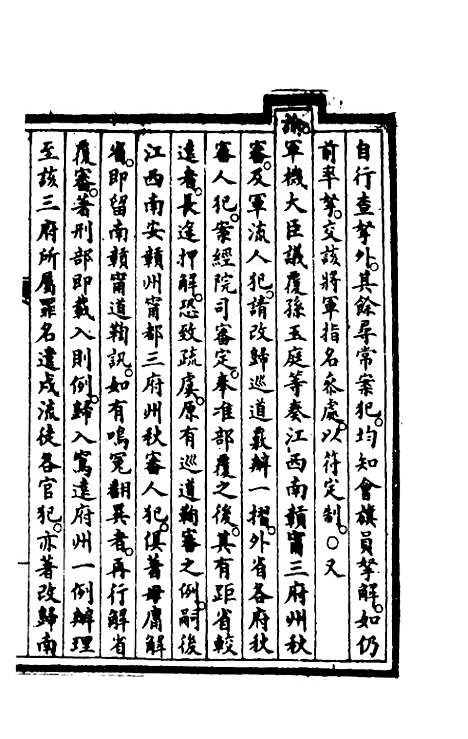 自行查拏外。其餘尋常案犯。均知會旗員拏解。如仍
前率拏。交該將軍指名叅處。以符定制。○又
諭軍機大臣議覆孫玉庭等奏江西南贛甯三府州秋
審。及軍流人犯。請改歸巡道覈辦一摺。外省各府秋
審人犯。案經院司審定。奉准部覆之後。其有距省較
遠者。長途押解。恐致疏虞。原有巡道鞫審之例。嗣後
江西南安贛州甯都三府州秋審人犯。俱著毋庸解
省。即留南贛甯道鞫訊。如有鳴冤翻異者。再行解省
覆審。著刑部即載入則例。歸入寫遠府州一例辦理
至該三府所屬罪名遣戍流徒各官犯。亦著改歸南